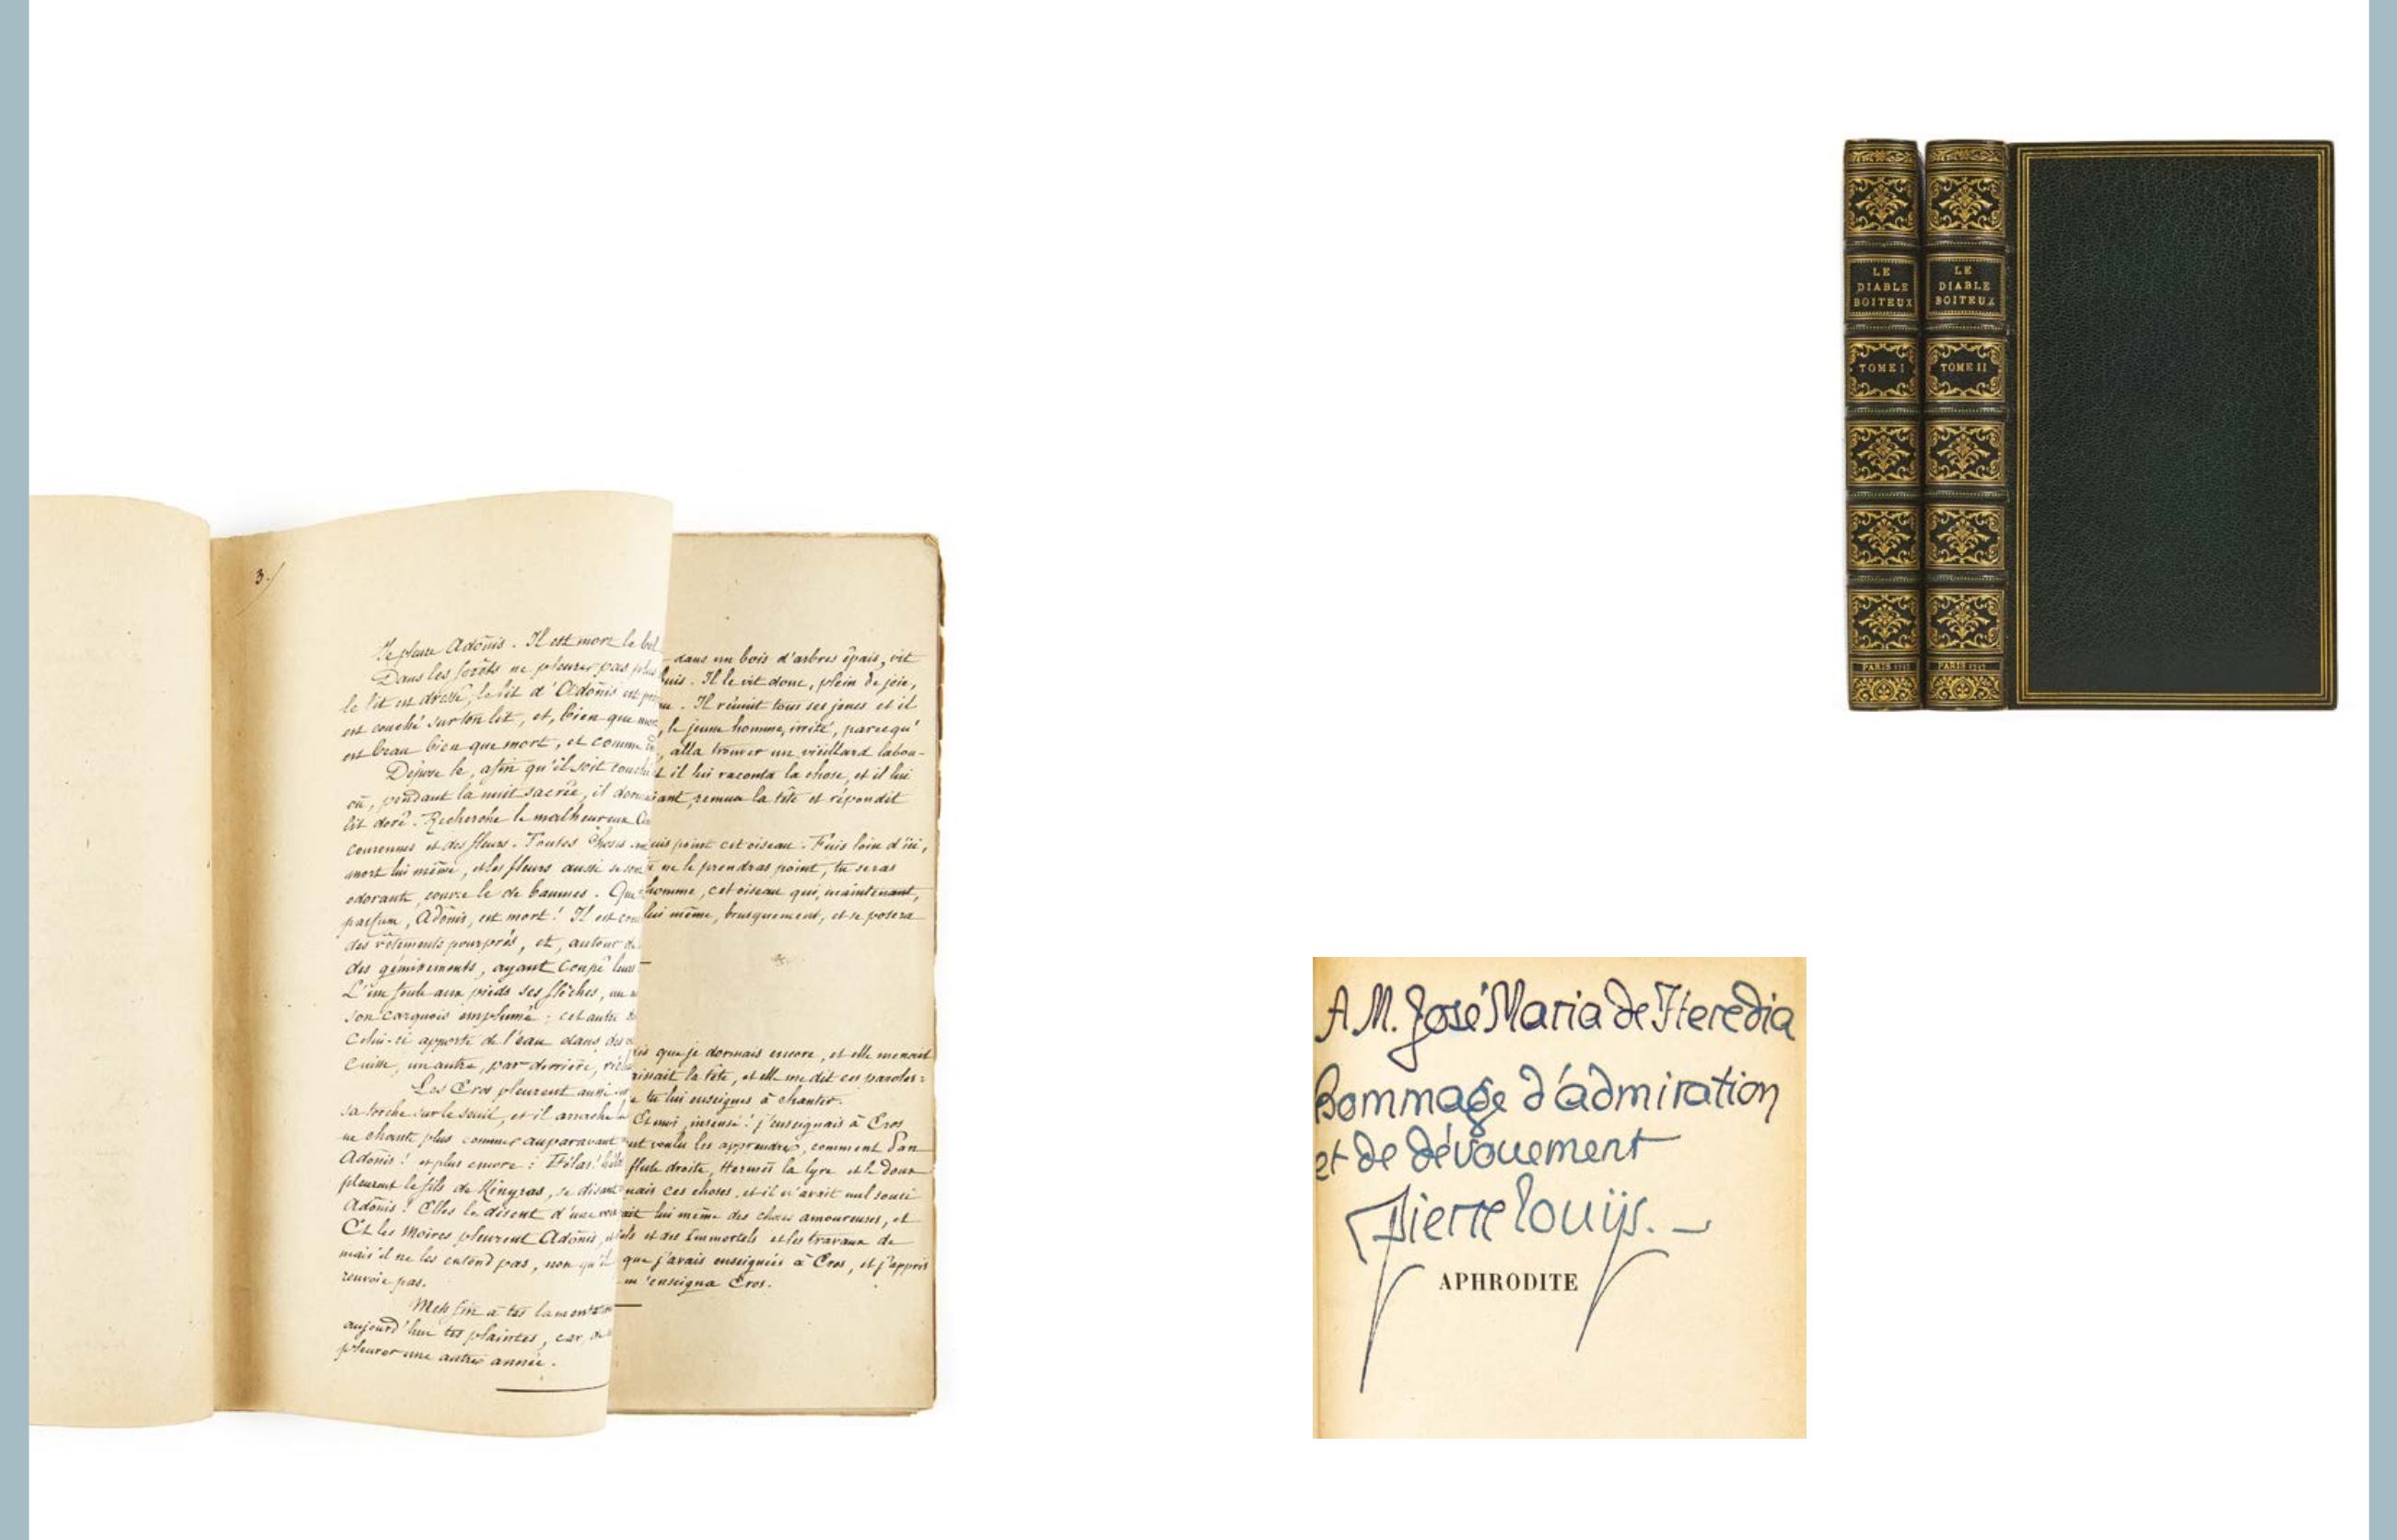 3.
Je pleure Adônis. Il est mort le bel
Dans les forêts ne pleurer pas plus
le lit est dressé, le lit d'Adônis est
est couché sur ton lit, et, bien que mort,
est beau bien que mort, et comme
Dépose le, afin qu'il soit couché
où, pendant la nuit sacrée, il
lit doré. Recherche le malheureux
couronnes et des fleurs. Toutes choses
mort lui même, et les fleurs aussi se sont
odorante, couvre le de baumes. Que
parfum, Adônis, est mort! Il est
des vêtements pourprés, et, autour de
des gémissements, ayant coupé leurs
L'un foule aux pieds ses flèches, un
son carquois emplumé; cet autre
Celui-ci apporte de l'eau dans des
cuisse, un autre, par derrière,
Les Eros pleurent aussi
sa torche sur le seuil, et il arrache
ne chante plus comme auparavant
Adônis! et plus encore: Hélas! hélas
pleurent le fils de Kinyras, se disant
Adônis! Elles le disent d'une
Et les Moires pleurent Adônis,
mais il ne les entend pas, non qu'il
renvoie pas.
Mets fin à tes lamentat
aujourd'hui tes plaintes, car,
pleurer une autre année.
dans un bois d'arbres épais, vit
buis. Il le vit donc, plein de joie,
Il réunit tous ses joncs et il
le jeune homme, irrité, parcequ'
alla trouver un vieillard labou-
et il lui raconta la chose, et il lui
remua la tête et répondit
point cet oiseau. Fuis loin d'ici,
ne le prendras point, tu seras
homme, cet oiseau qui, maintenant,
lui même, brusquement, et se posera
que je dormais encore, et elle menait
baissait la tête, et elle me dit ces paroles:
tu lui enseignes à chanter.
Et moi, insensé! j'enseignais à Eros
voulu les apprendre, comment Pan
flûte droite, Hermès la lyre et le doux
ces choses, et il n'avait nul souci
lui même des choses amoureuses, et
et des Immortels et les travaux de
que j'avais enseignées à Eros, et j'appris
m'enseigna Eros.
LE
DIABLE
BOITEUX
TOME I
PARIS
LE
DIABLE
BOITEUX
TOME II
PARIS
A M. José Maria de Heredia
Hommage d'admiration
et de dévouement
Pierre Louijs.
APHRODITE